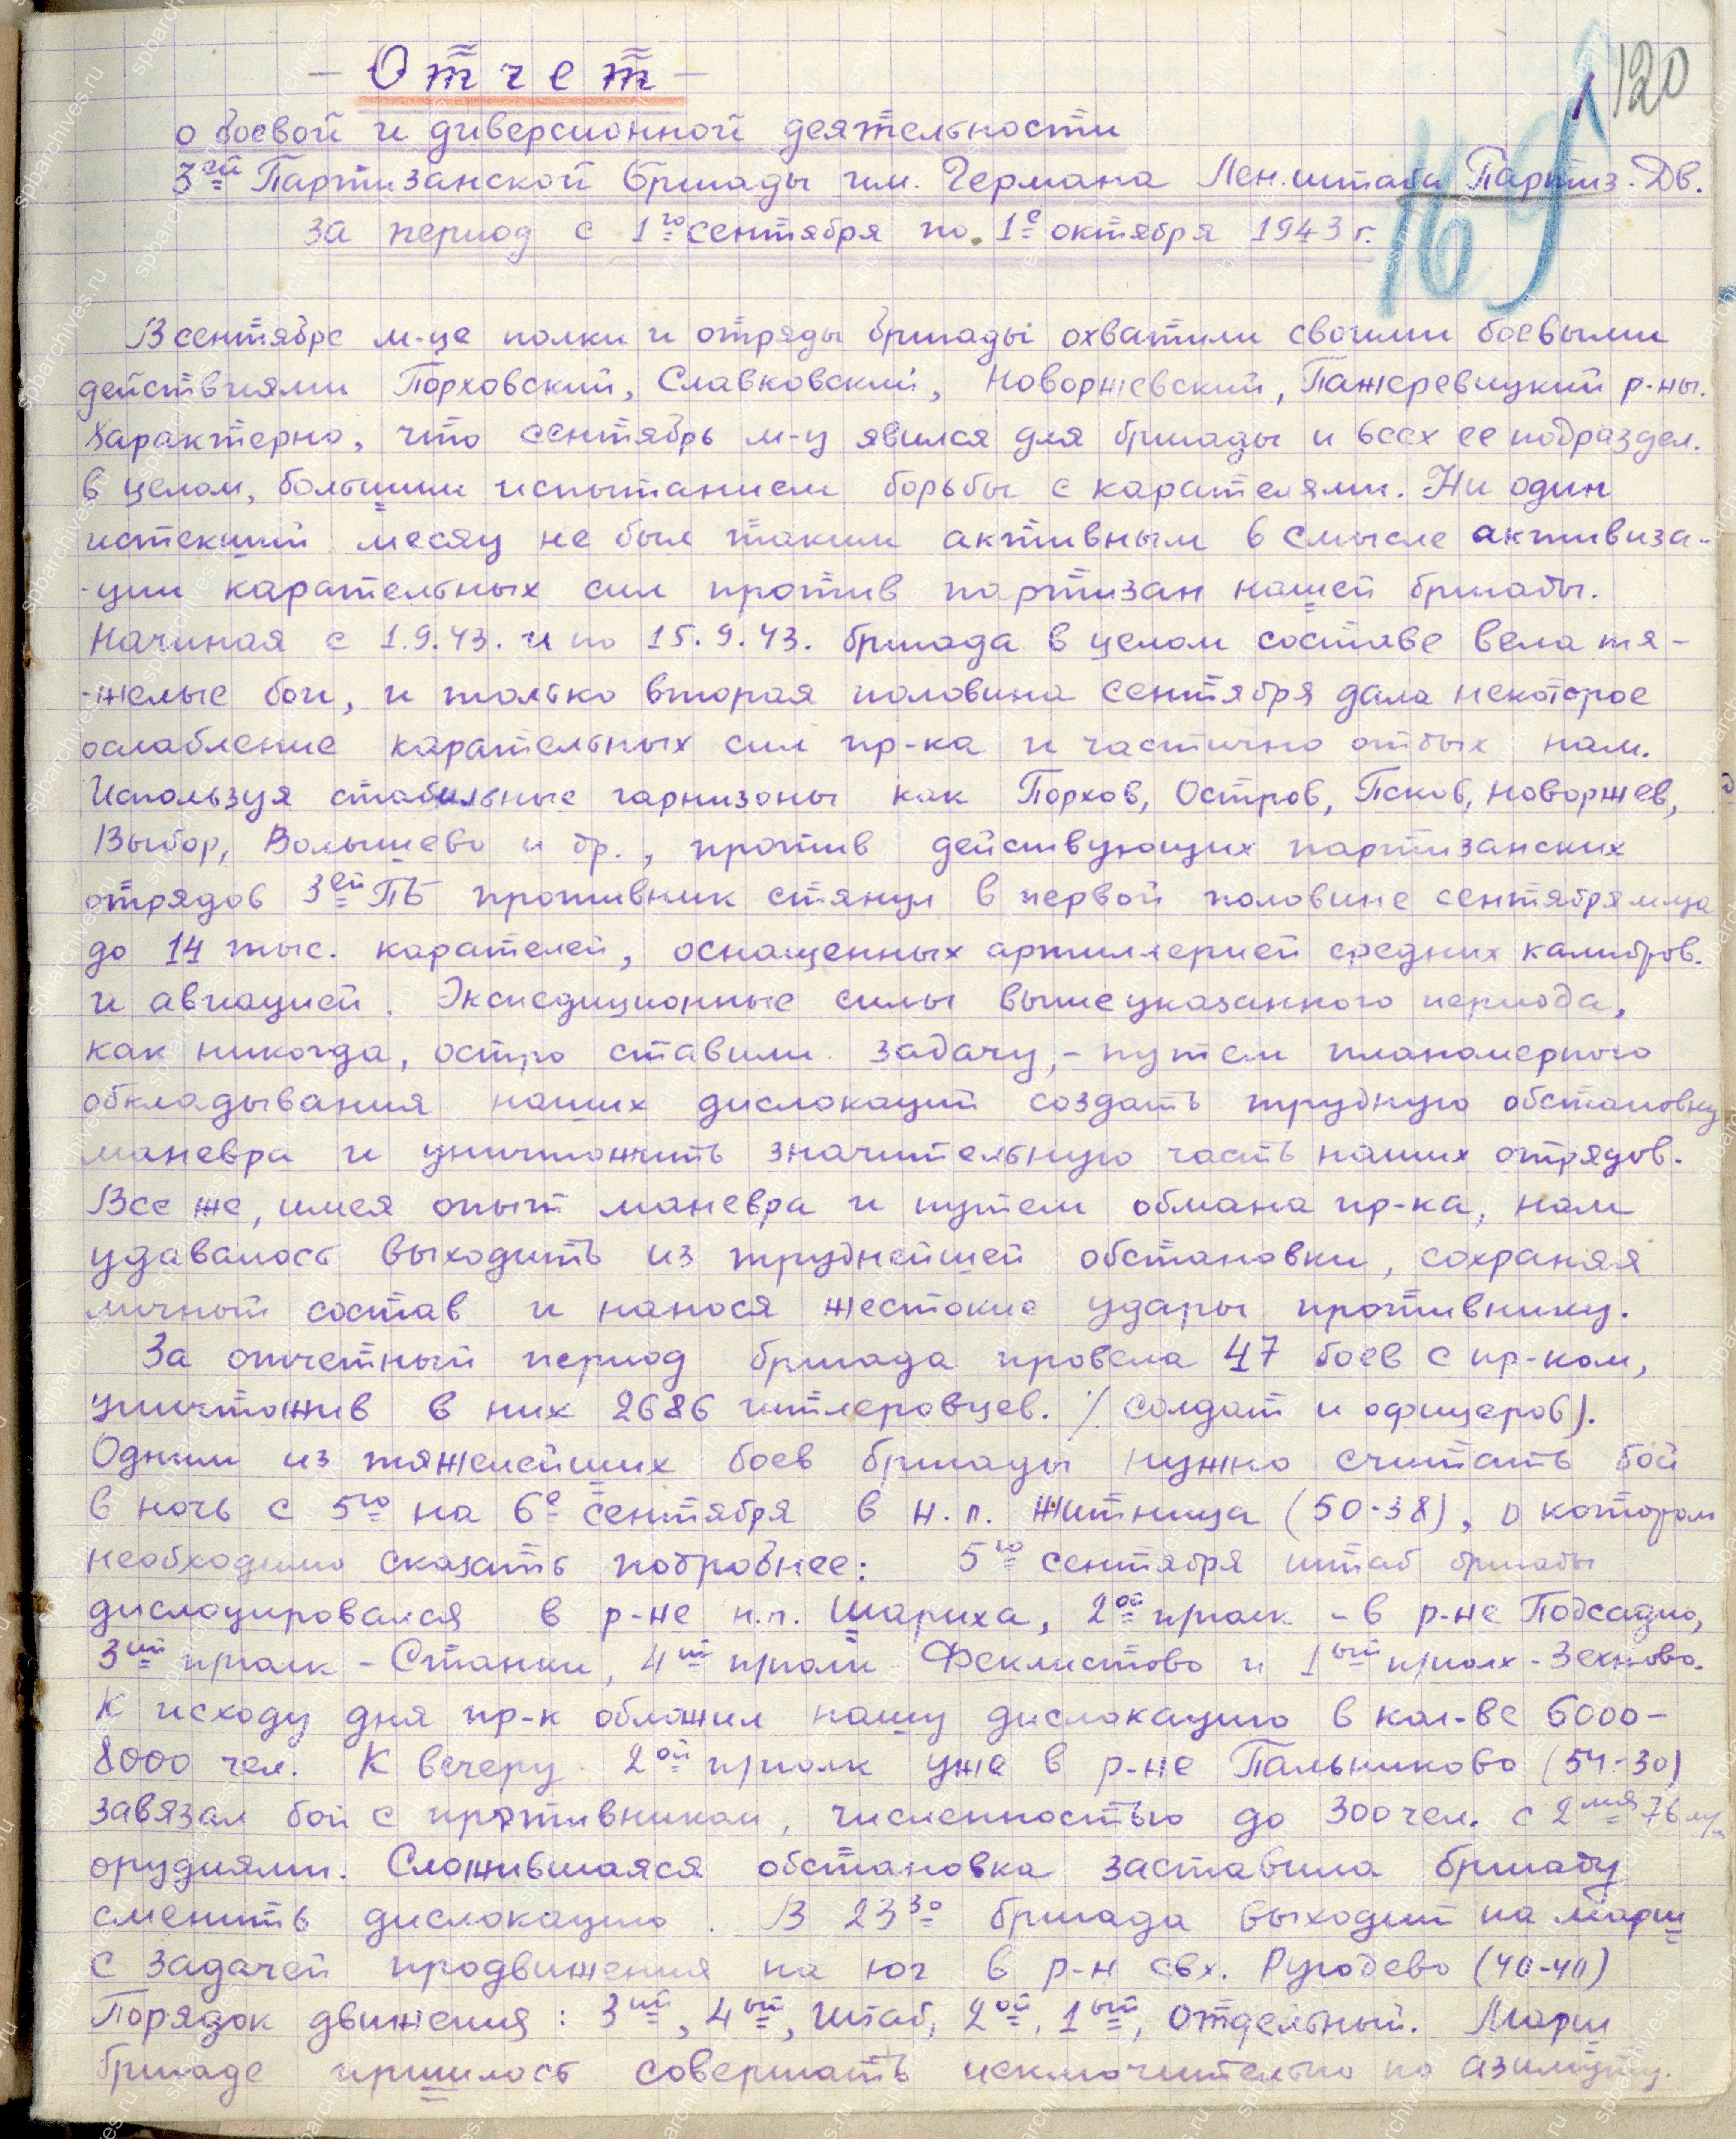 120
169
- Отчет -
о боевой и диверсионной деятельности
3ей Партизанской бригады им. Германа Лен.штаба Партиз. Дв.
за период с 1го сентября по 1е октября 1943 г.
В сентябре м-це полки и отряды бригады охватили своими боевыми
действиями Порховский, Славковский, Новоржевский, Пажеревицкий р-ны.
Характерно, что сентябрь м-ц явился для бригады и всех ее подраздел.
в целом, большим испытанием борьбы с карателями. Ни один
истекший месяц не был таким активным в смысле активиза-
-ции карательных сил против партизан нашей бригады.
Начиная с 1.9.43. и по 15.9.43. бригада в целом составе вела тя-
-желые бои, и только вторая половина сентября дала некоторое
ослабление карательных сил пр-ка и частично отдых нам.
Используя стабильные гарнизоны как Порхов, Остров, Псков, Новоржев,
Выбор, Волышево и др., против действующих партизанских
отрядов 3ей ПБ противник стянул в первой половине сентября м-ца
до 14 тыс. карателей, оснащенных артиллерией средних калибров.
и авиацией. Экспедиционные силы вышеуказанного периода,
как никогда, остро ставили задачу, - путем планомерного
обкладывания наших дислокаций создать трудную обстановку
маневра и уничтожить значительную часть наших отрядов.
Все же, имея опыт маневра и путем обмана пр-ка, нам
удавалось выходить из труднейшей обстановки, сохраняя
личный состав и нанося жестокие удары противнику.
За отчетный период бригада провела 47 боев с пр-ком,
уничтожив в них 2686 гитлеровцев. /солдат и офицеров).
Одним из тяжелейших боев бригады нужно считать бой
в ночь с 5го на 6е сентября в н.п. Житница (50-38), о котором
необходимо сказать подробнее: 5го сентября штаб бригады
дислоцировался в р-не н.п. Шариха, 2ой п/полк - в р-не Подсадно,
3ий п/полк - Станки, 4ый п/полк Феклистово и 1ый п/полк - Зехново.
К исходу дня пр-к обложил нашу дислокацию в кол-ве 6000-
8000 чел. К вечеру 2ой п/полк уже в р-не Пальниково (54-30)
завязал бой с противником, численностью до 300 чел. с 2мя 76 м/м
орудиями. Сложившаяся обстановка заставила бригаду
сменить дислокацию. В 23 30 бригада выходит на марш
с задачей продвижения на юг в р-н свх. Ругодево (40-40)
Порядок движения: 3ий, 4ый, Штаб, 2ой, 1ый, отдельный. Марш
бригаде пришлось совершать исключительно по азимуту.